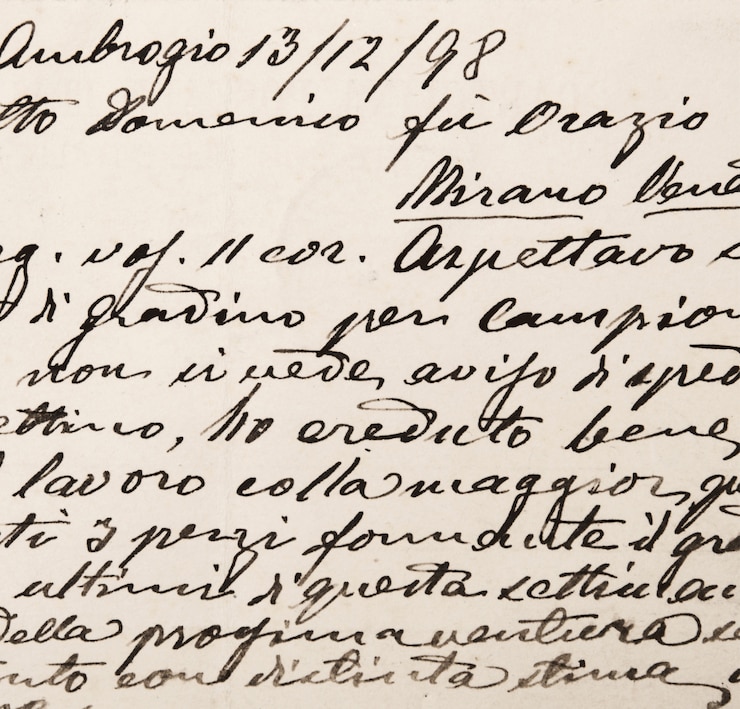 Ambrogio 13/12/98
tto Domenico fù Orazio
Mirano Vene
eg. vos. 11 cor. Aspettavo
di gradino per campion
non si vede, aviso di sped
ettino, ho creduto bene,
lavoro colla maggior
ti 3 pezzi formante il gra
ultimi di questa settim
della prossima ventura se
nto con distinta stima,